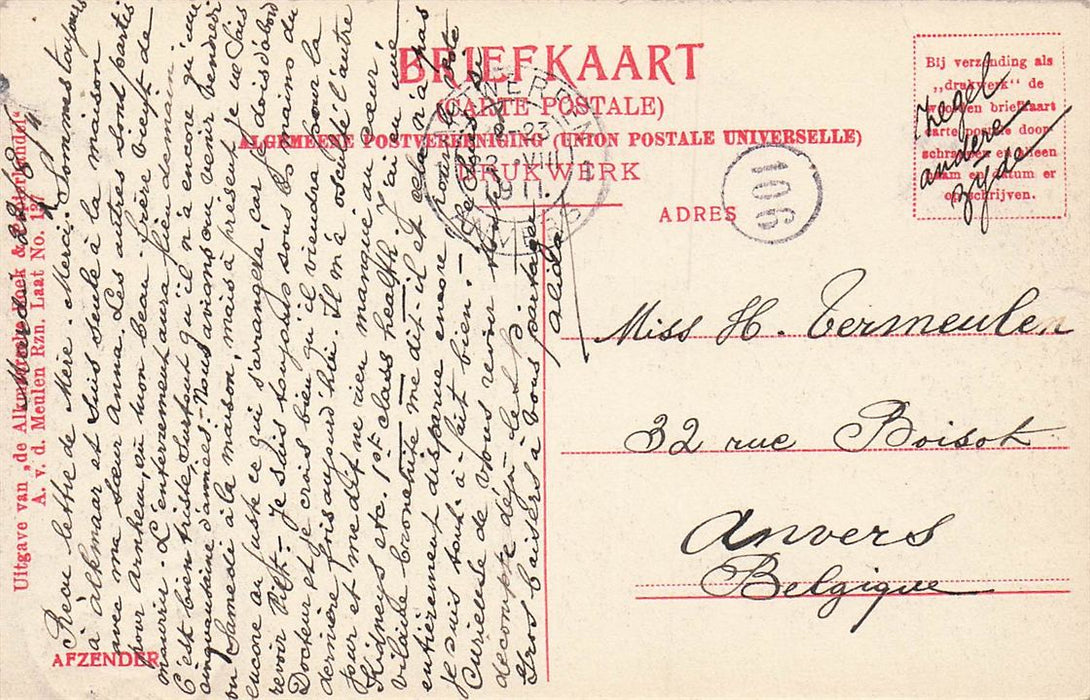 BRIEFKAART
(CARTE POSTALE)
ALGEMEENE POSTVEREENIGING (UNION POSTALE UNIVERSELLE)
DRUKWERK
ADRES
106
Bij verzending als
„drukwerk“ de
woorden briefkaart
carte postale door-
schrappen en alleen
naam en datum er
op schrijven.
Zegel
andere
zyde
Miss H. Vermeulen
32 rue Boisot
Anvers
Belgique
AFZENDER
Uitgave van „de Alkmaarsche Boek &
A. v. d. Meulen Rzn. Laat No. 13
22/8/11
Reçu lettre de Mère. Merci. Sommes toujours
à Alkmaar et suis seule à la maison
avec ma sœur Anna. Les autres sont partis
pour Arnhem, où mon beau-frère vient de
mourir. L'enterrement aura lieu demain
C'est bien triste, surtout qu'il n'a encore qu'une
cinquantaine d'années. Nous avions cru venir Vendredi
ou Samedi à la maison, mais à présent je ne sais
encore au juste ce qui s'arrangera, car je dois d'abord
revoir Piet. Je suis toujours sous les mains du
Docteur et je crois bien qu'il viendra pour la
dernière fois aujourd'hui. Il m'a osculté l'autre
jour et me dit ne rien manqué au cœur,
Kidneys etc. 1st class health. J'ai eu une
vilaine bronchite me dit-il et cela n'a pas
entièrement disparue encore pour
je suis tout à fait bien. Je
Curieuse de vous revoir
décompte déjà les
Gros baisers à vous partager
Alida